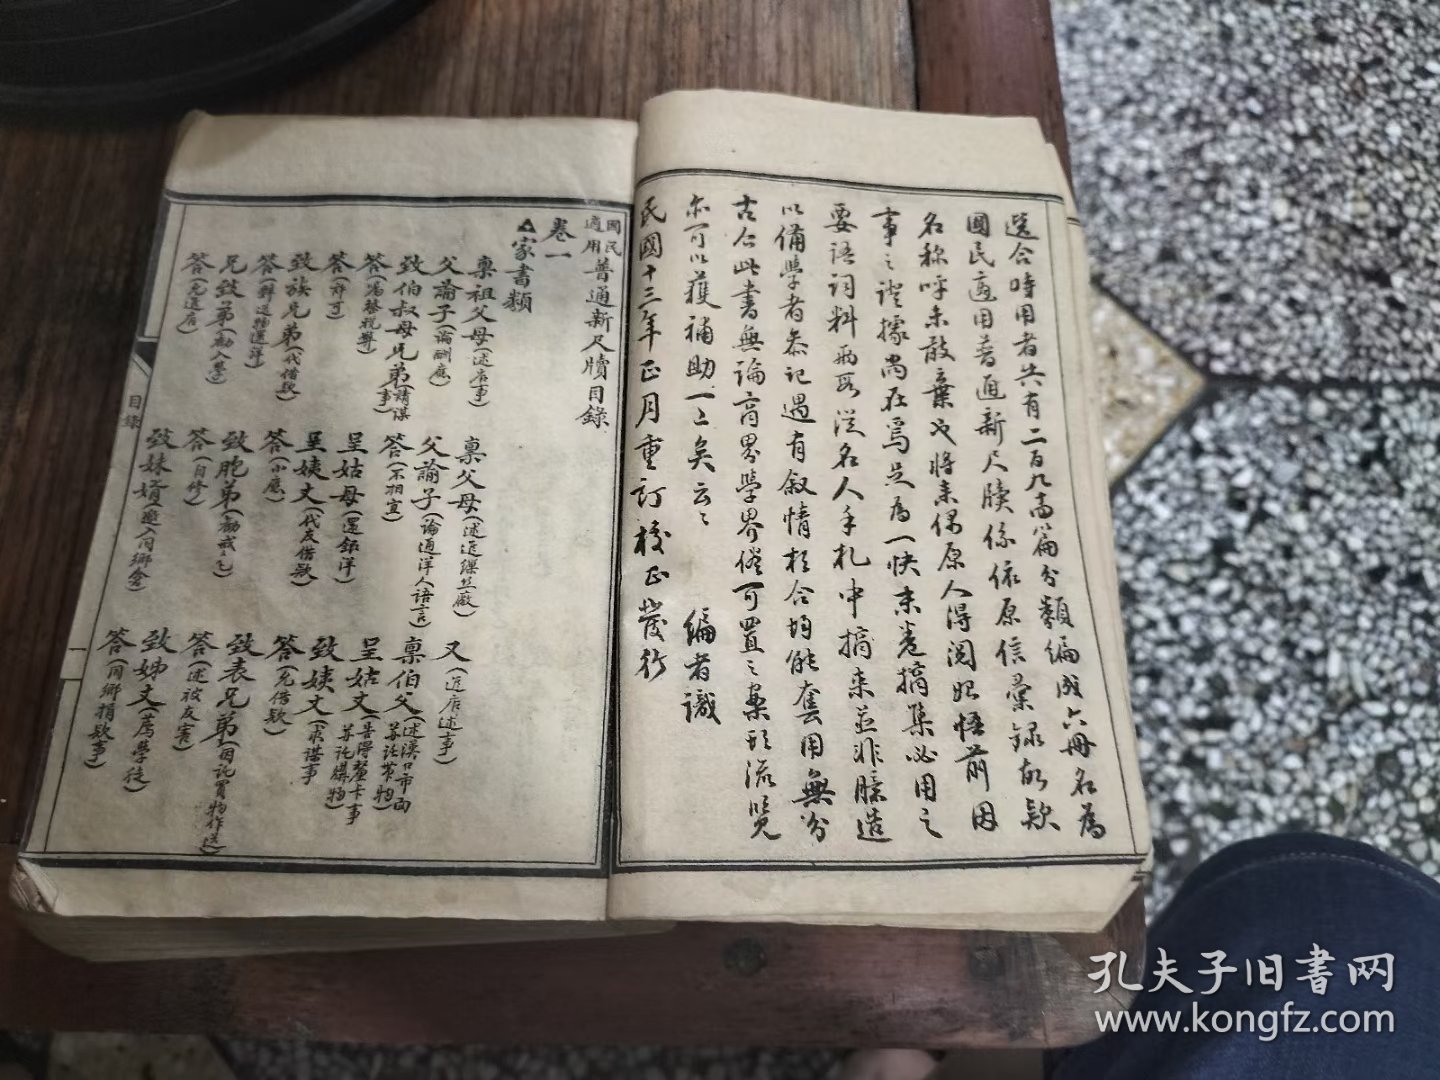 選合時用者共有二百九十篇分類編成六冊名為
國民適用普通新尺牘係依原信彙錄故欵
名稱呼未敢棄也將來偶原人得閱如悟前因
事之證據尚在焉足為一快末卷摘集必用之
要語詞料而或從名人手札中摘來並非臆造
以備學者參記遇有敘情相合均能套用無分
古今此書無論商界學界儘可置之案頭流覽
亦可以獲補助一二矣云云
編者識
民國十三年正月重訂校正發行
國民適用普通新尺牘目錄
卷一
△家書類
稟祖父母(述店事)
稟父母(述進繅絲廠)
又(進店述事)
父諭子(論酬應)
父諭子(論通洋人語言)
稟伯父(述漢口市面並託帶物)
致伯叔母兄弟(請謀事)
答(不相宜)
呈姑丈(晉得釐卡事並託購物)
答(為發祝壽)
呈姑母(還銀洋)
致姨丈(求謀事)
答(許可)
呈姨丈(代友借欵)
答(允借欵)
致族兄弟(代借欵)
答(小應)
致表兄弟(因託買物作送)
答(辭送物還洋)
致胞弟(勸戒乞)
答(述被友害)
兄致弟(勸入學)
答(自修)
致姊丈(薦學徒)
答(允進店)
致妹婿(邀入同鄉會)
答(同鄉捐欵事)
目錄
孔夫子旧书网
www.kongfz.com